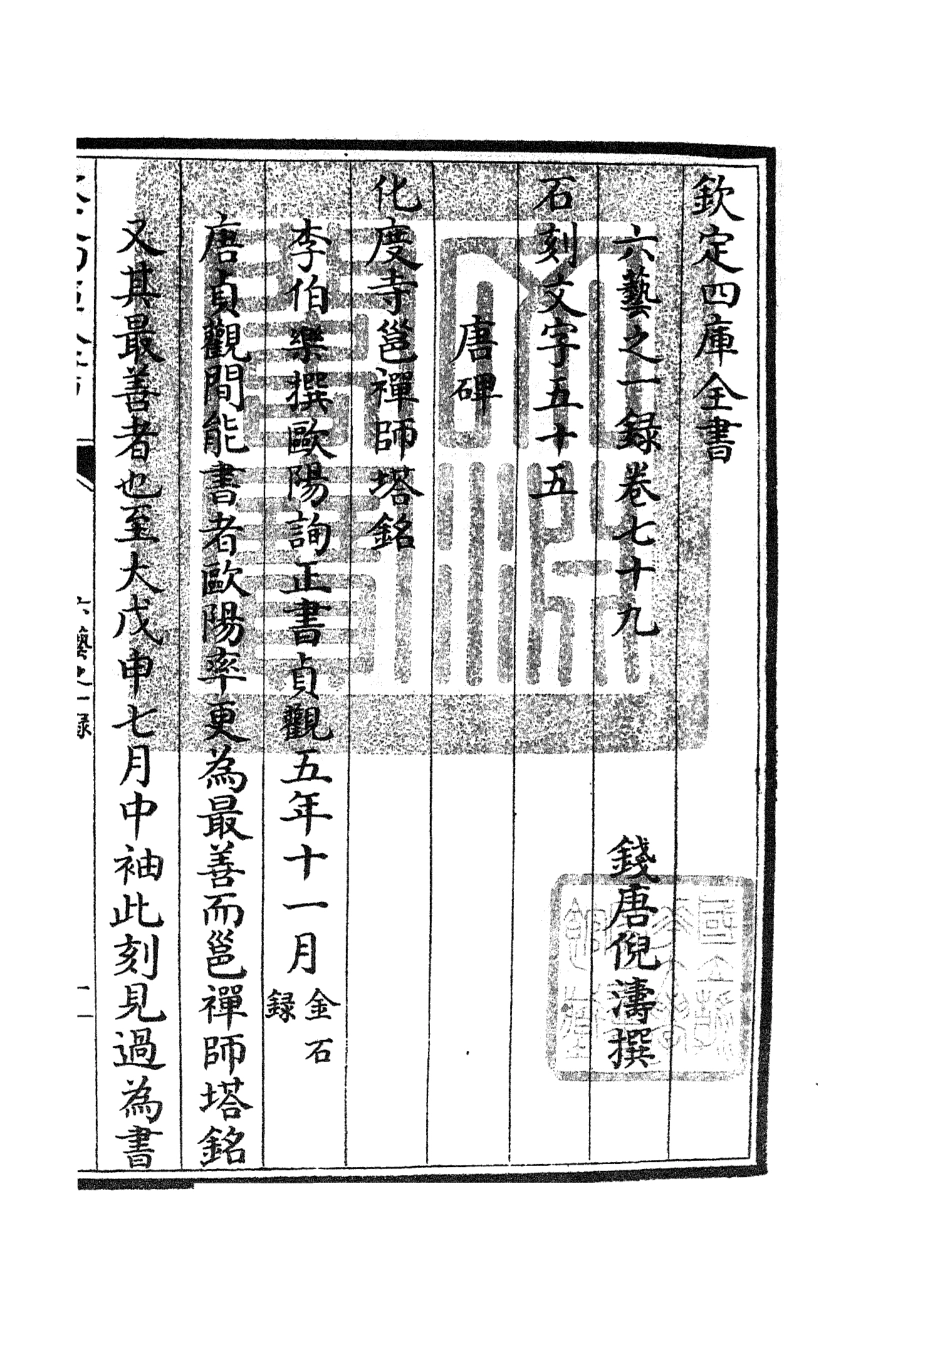 欽定四庫全書
六藝之一錄卷七十九
錢唐倪濤撰
石刻文字五十五
唐碑
化度寺邕禪師塔銘
李伯樂撰歐陽詢正書貞觀五年十一月金石錄
唐貞觀間能書者歐陽率更為最善而邕禪師塔銘
又其最善者也至大戊申七月中袖此刻見過為書
六藝之一錄
一